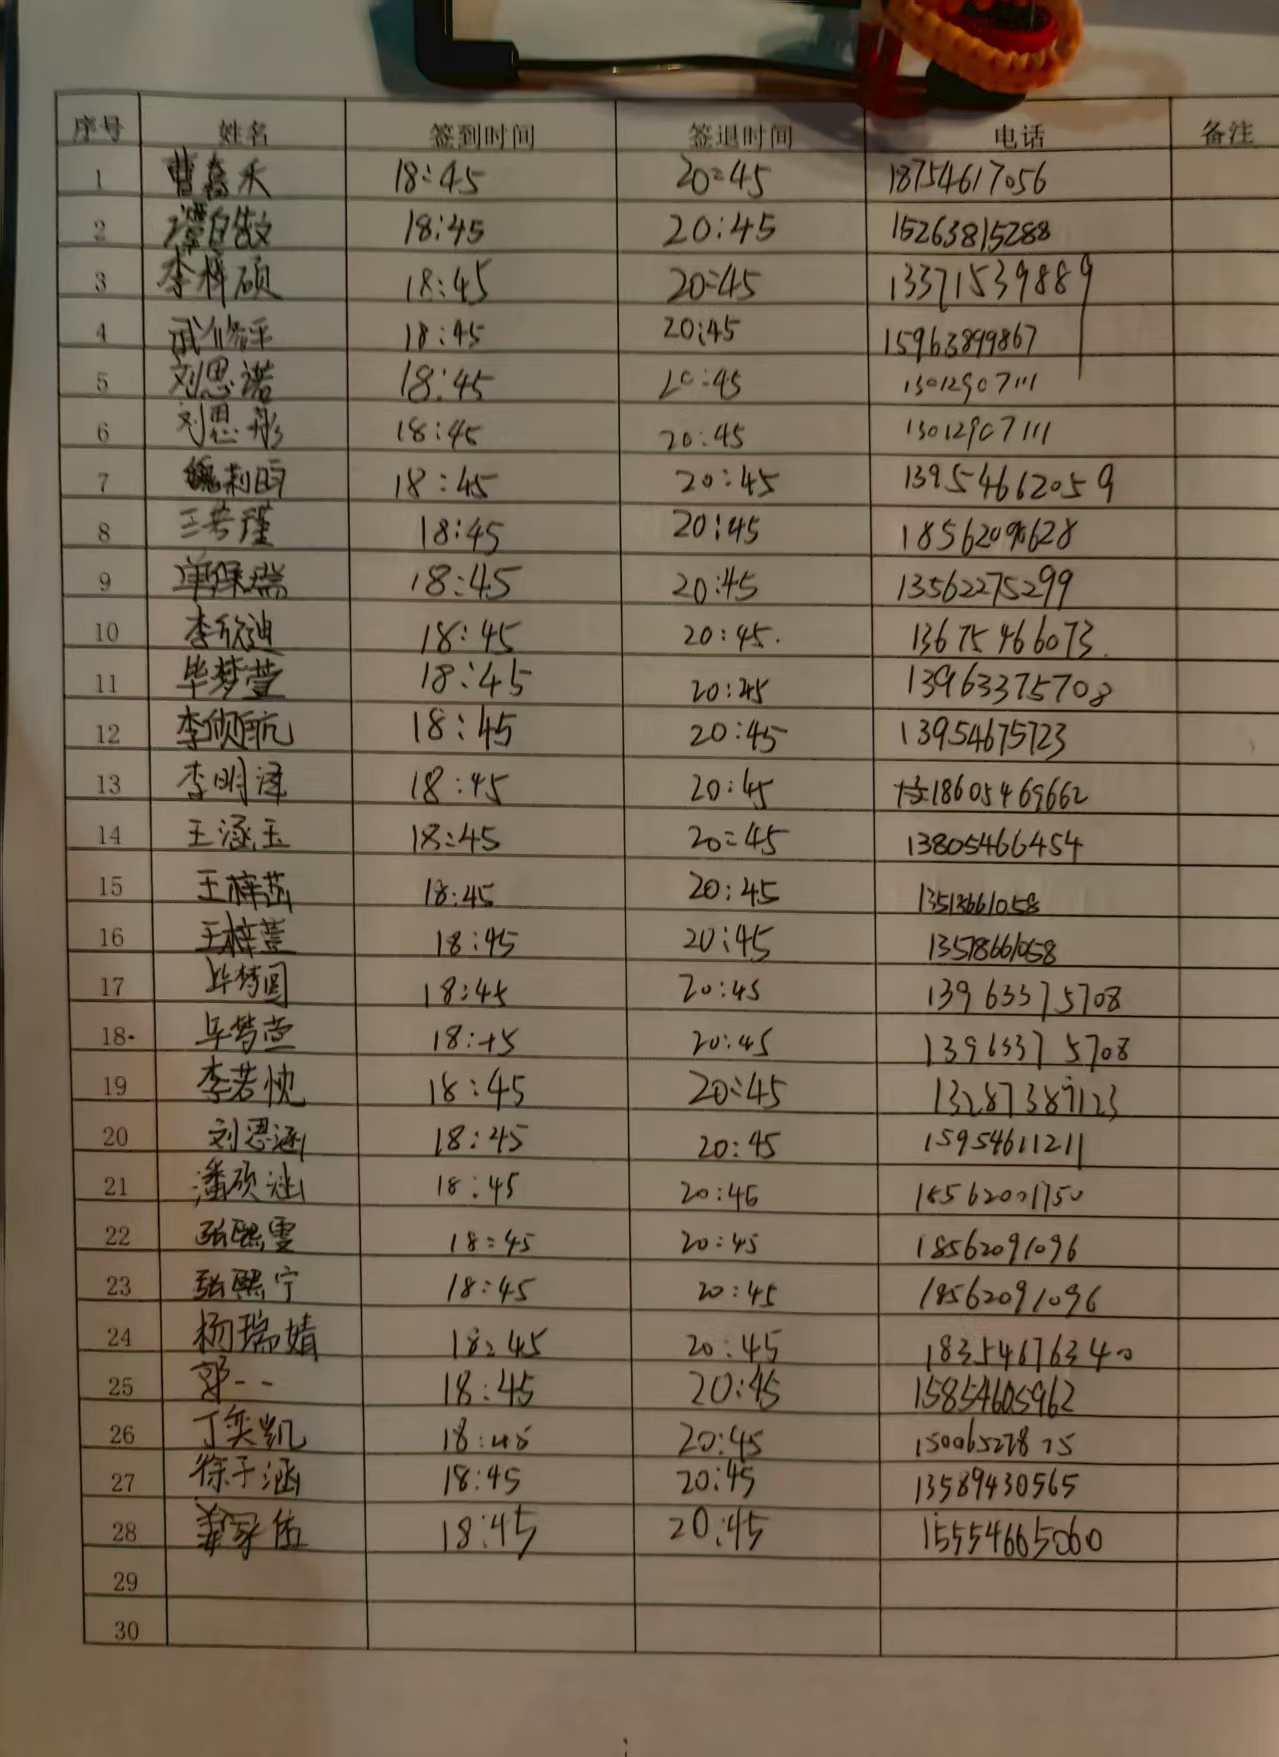 序号 姓名 签到时间 签退时间 电话 备注
1 曹 禾 18:45 20:45 18754617056
2 18:45 20:45 15263815288
3 李梓硕 18:45 20:45 13371539889
4 武修平 18:45 20:45 15963899867
5 刘思诺 18:45 20:45 13012907111
6 刘思彤 18:45 20:45 13012907111
7 18:45 20:45 13954662059
8 王若瑾 18:45 20:45
9 18:45 20:45 13562275299
10 李欣迪 18:45 20:45. 13675466073.
11 毕梦萱 18:45 20:45 13963375708
12 李 航 18:45 20:45 13954675723
13 李明泽 18:45 20:45 18605469662
14 王涵玉 18:45 20:45 13805466454
15 王梓 18:45 20:45
16 王梓萱 18:45 20:45
17 毕梦圆 18:45 20:45 13963375708
18 毕梦萱 18:45 20:45 13963375708
19 李若忱 18:45 20:45 13287387123
20 刘思涵 18:45 20:45 15954611211
21 潘硕涵 18:45 20:45 18562001750
22 张熙雯 18:45 20:45 18562091096
23 张熙宁 18:45 20:45 18562091096
24 杨瑞婧 18:45 20:45 18354676340
25 郭一一 18:45 20:45 15854605962
26 丁奕凯 18:45 20:45
27 徐子涵 18:45 20:45 13589430565
28 姜家伍 18:45 20:45 15554665060
29
30